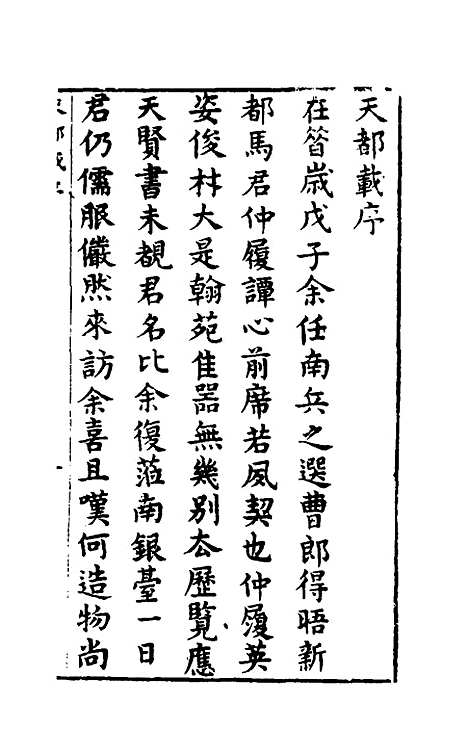 天都載序
在昝嵗戊子余任南兵之選曹郎得晤新
都馬君仲履譚心前席若夙契也仲履英
姿俊材大是翰苑佳器無幾别厺歷覽應
天賢書未覩君名比余復蒞南銀臺一日
君仍儒服儼然來訪余喜且嘆何造物尚